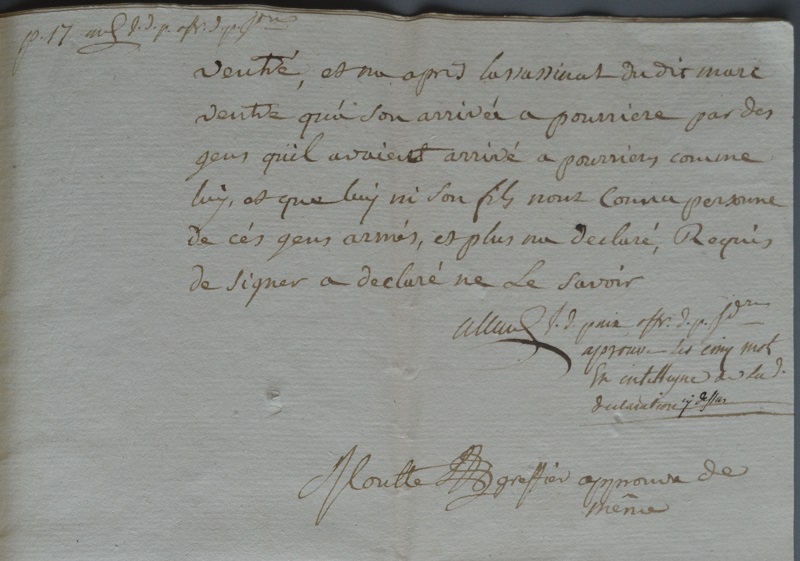 p. 17
ventré, et na apris lassassinat du dit marc
ventre qu'a son arrivéa a pourriere par des
gens qu'il avaient arrivé a pourriers comme
luy, et que luy ni son fils n'ont Connu personne
de cés gens armés, et plus na declaré, Requis
de signer a declaré ne Le savoir
j. d. paix offr. d. p. jdre
aprouve les cinq mot
En intelligne de la d.
declaration cy dessus
greffier approuva de
même